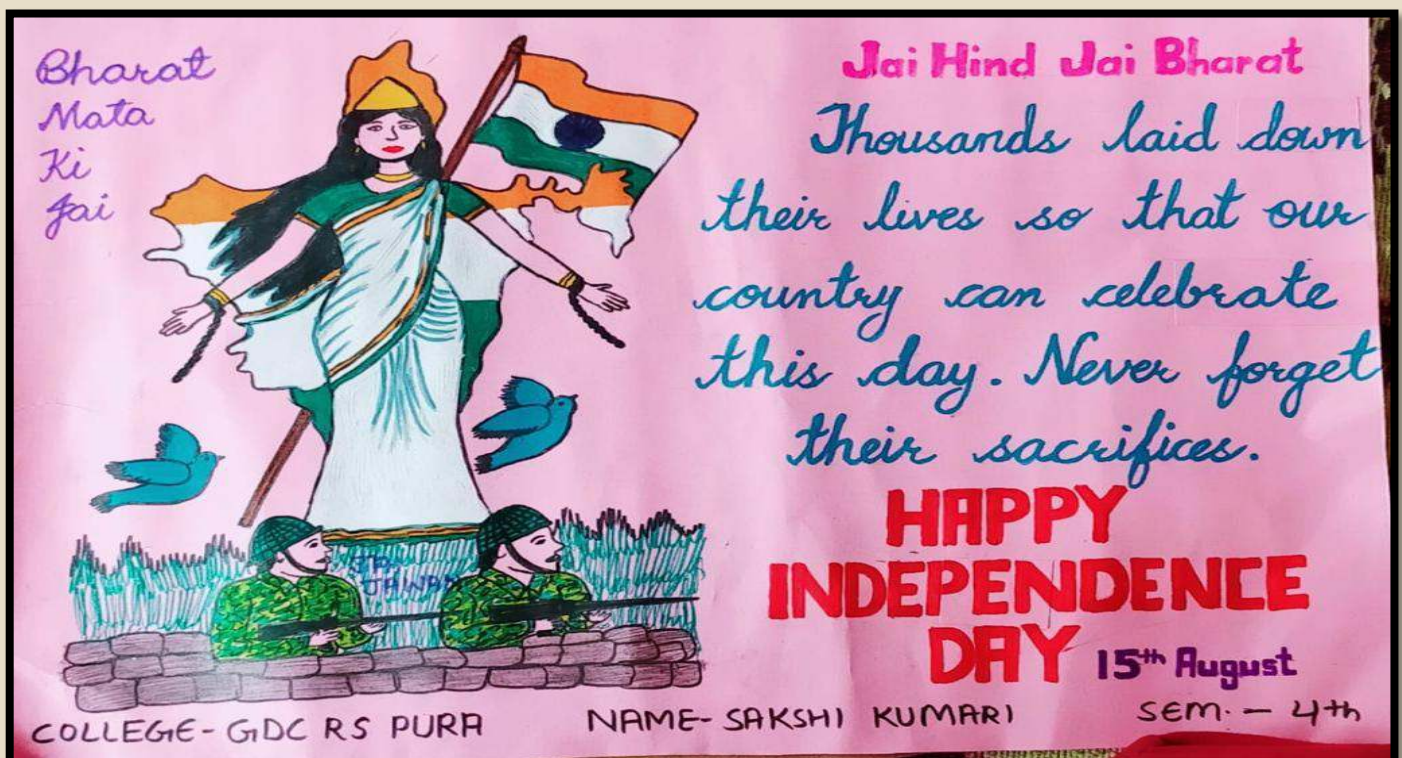 Bharat
Mata
Ki
Jai
Jai Hind Jai Bharat
Thousands laid down
their lives so that our
country can celebrate
this day. Never forget
their sacrifices.
HAPPY
INDEPENDENCE
DAY 15th August
JAWAN
COLLEGE-GDC RS PURA NAME-SAKSHI KUMARI SEM.-4th